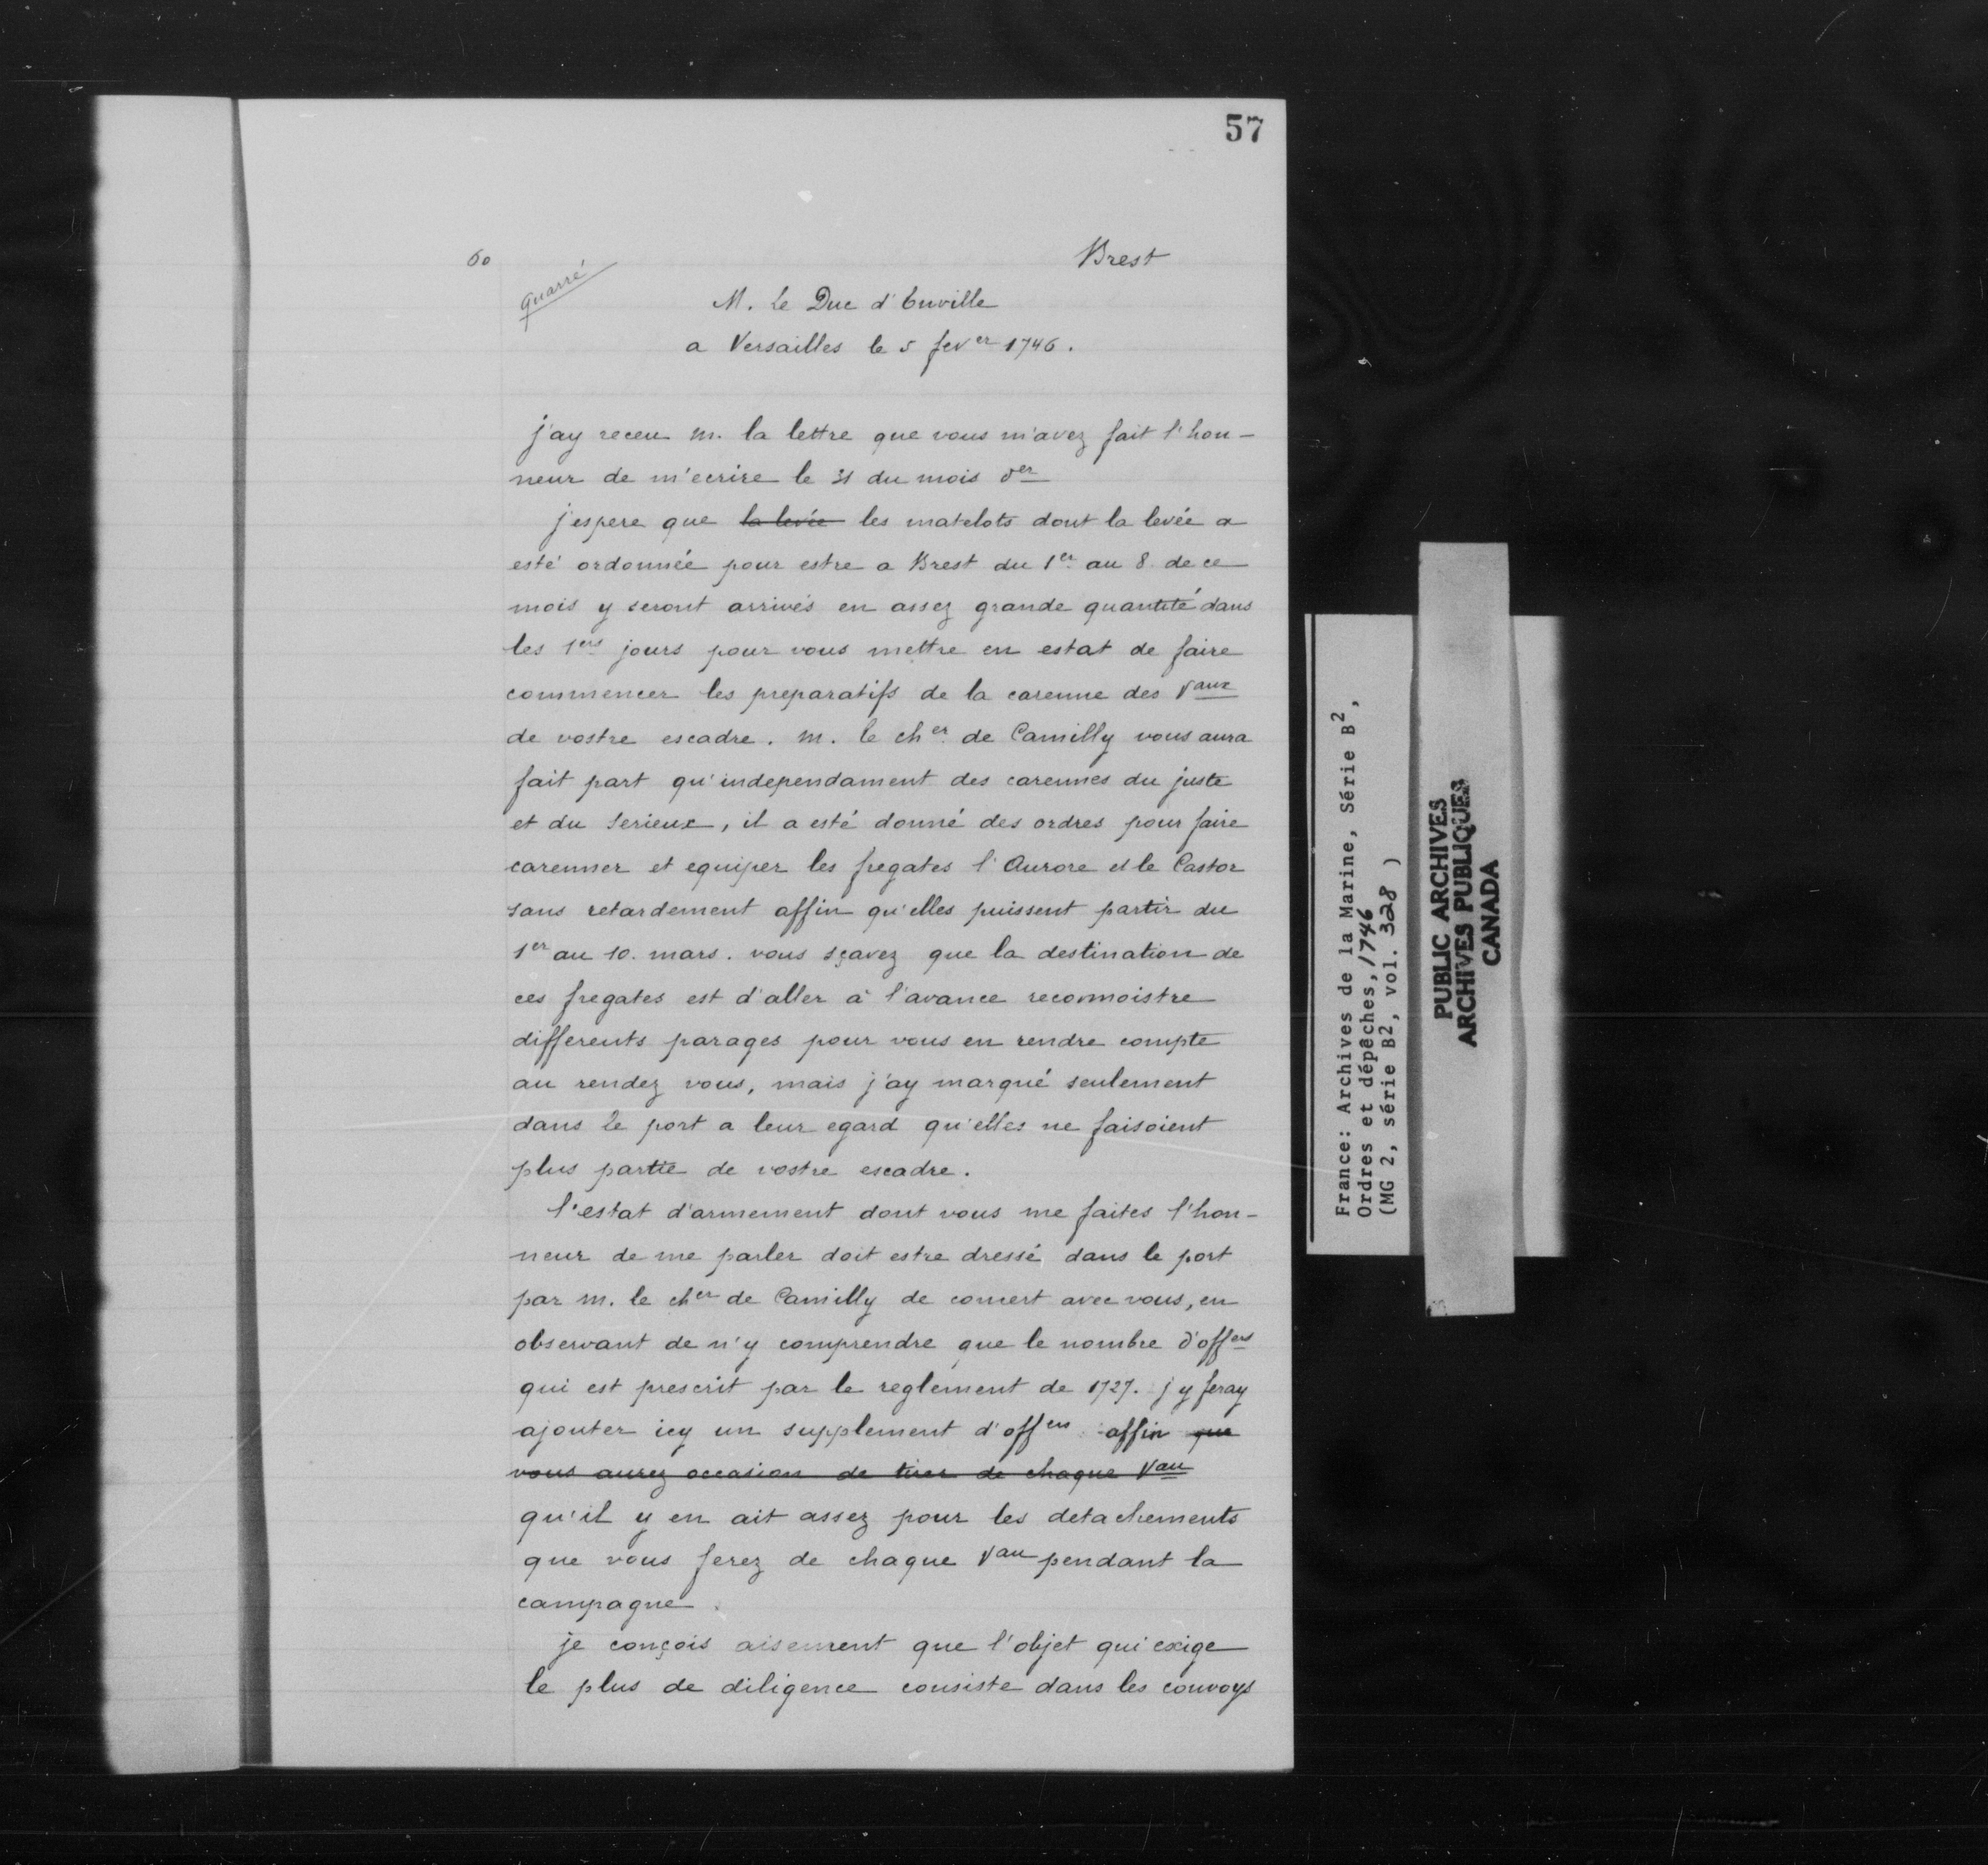 57
60
Brest
Quarré
M. Le Duc d'Enville
a Versailles le 5 fever 1746.
j'ay receu m. la lettre que vous m'avez fait l'hon-
neur de m'ecrire le 31 du mois der
j'espere que la levée les matelots dont la levée a
esté ordonnée pour estre a Brest du 1er au 8 de ce
mois y seront arrivés en assez grande quantité dans
les 1ers jours pour vous mettre en estat de faire
commencer les preparatifs de la carenne des Vaux
de vostre escadre. m. le cher de Camilly vous aura
fait part qu'independament des carennes du juste
et du Serieux, il a esté donné des ordres pour faire
carenner et equiper les fregates l'Aurore et le Castor
sans retardement affin qu'elles puissent partir du
1er au 10. mars. vous sçavez que la destination de
ces fregates est d'aller à l'avance reconnoistre
differents parages pour vous en rendre compte
au rendez vous, mais j'ay marqué seulement
dans le port a leur egard qu'elles ne faisoient
plus partie de vostre escadre.
l'estat d'armement dont vous me faites l'hon-
neur de me parler doit estre dressé dans le port
par m. le cher de Camilly de concert avec vous, en
observant de n'y comprendre que le nombre d'offers
qui est prescrit par le reglement de 1727. j'y feray
ajouter icy un supplement d'offers affin que
vous aurez occasion de tirer de chaque Vau
qu'il y en ait assez pour les detachements
que vous ferez de chaque Vau pendant la
campagne.
je conçois aisement que l'objet qui exige
le plus de diligence consiste dans les convoys
France: Archives de la Marine, Série B2,
Ordres et dépêches, 1746
(MG 2, série B2, vol. 328 )
PUBLIC ARCHIVES
ARCHIVES PUBLIQUES
CANADA